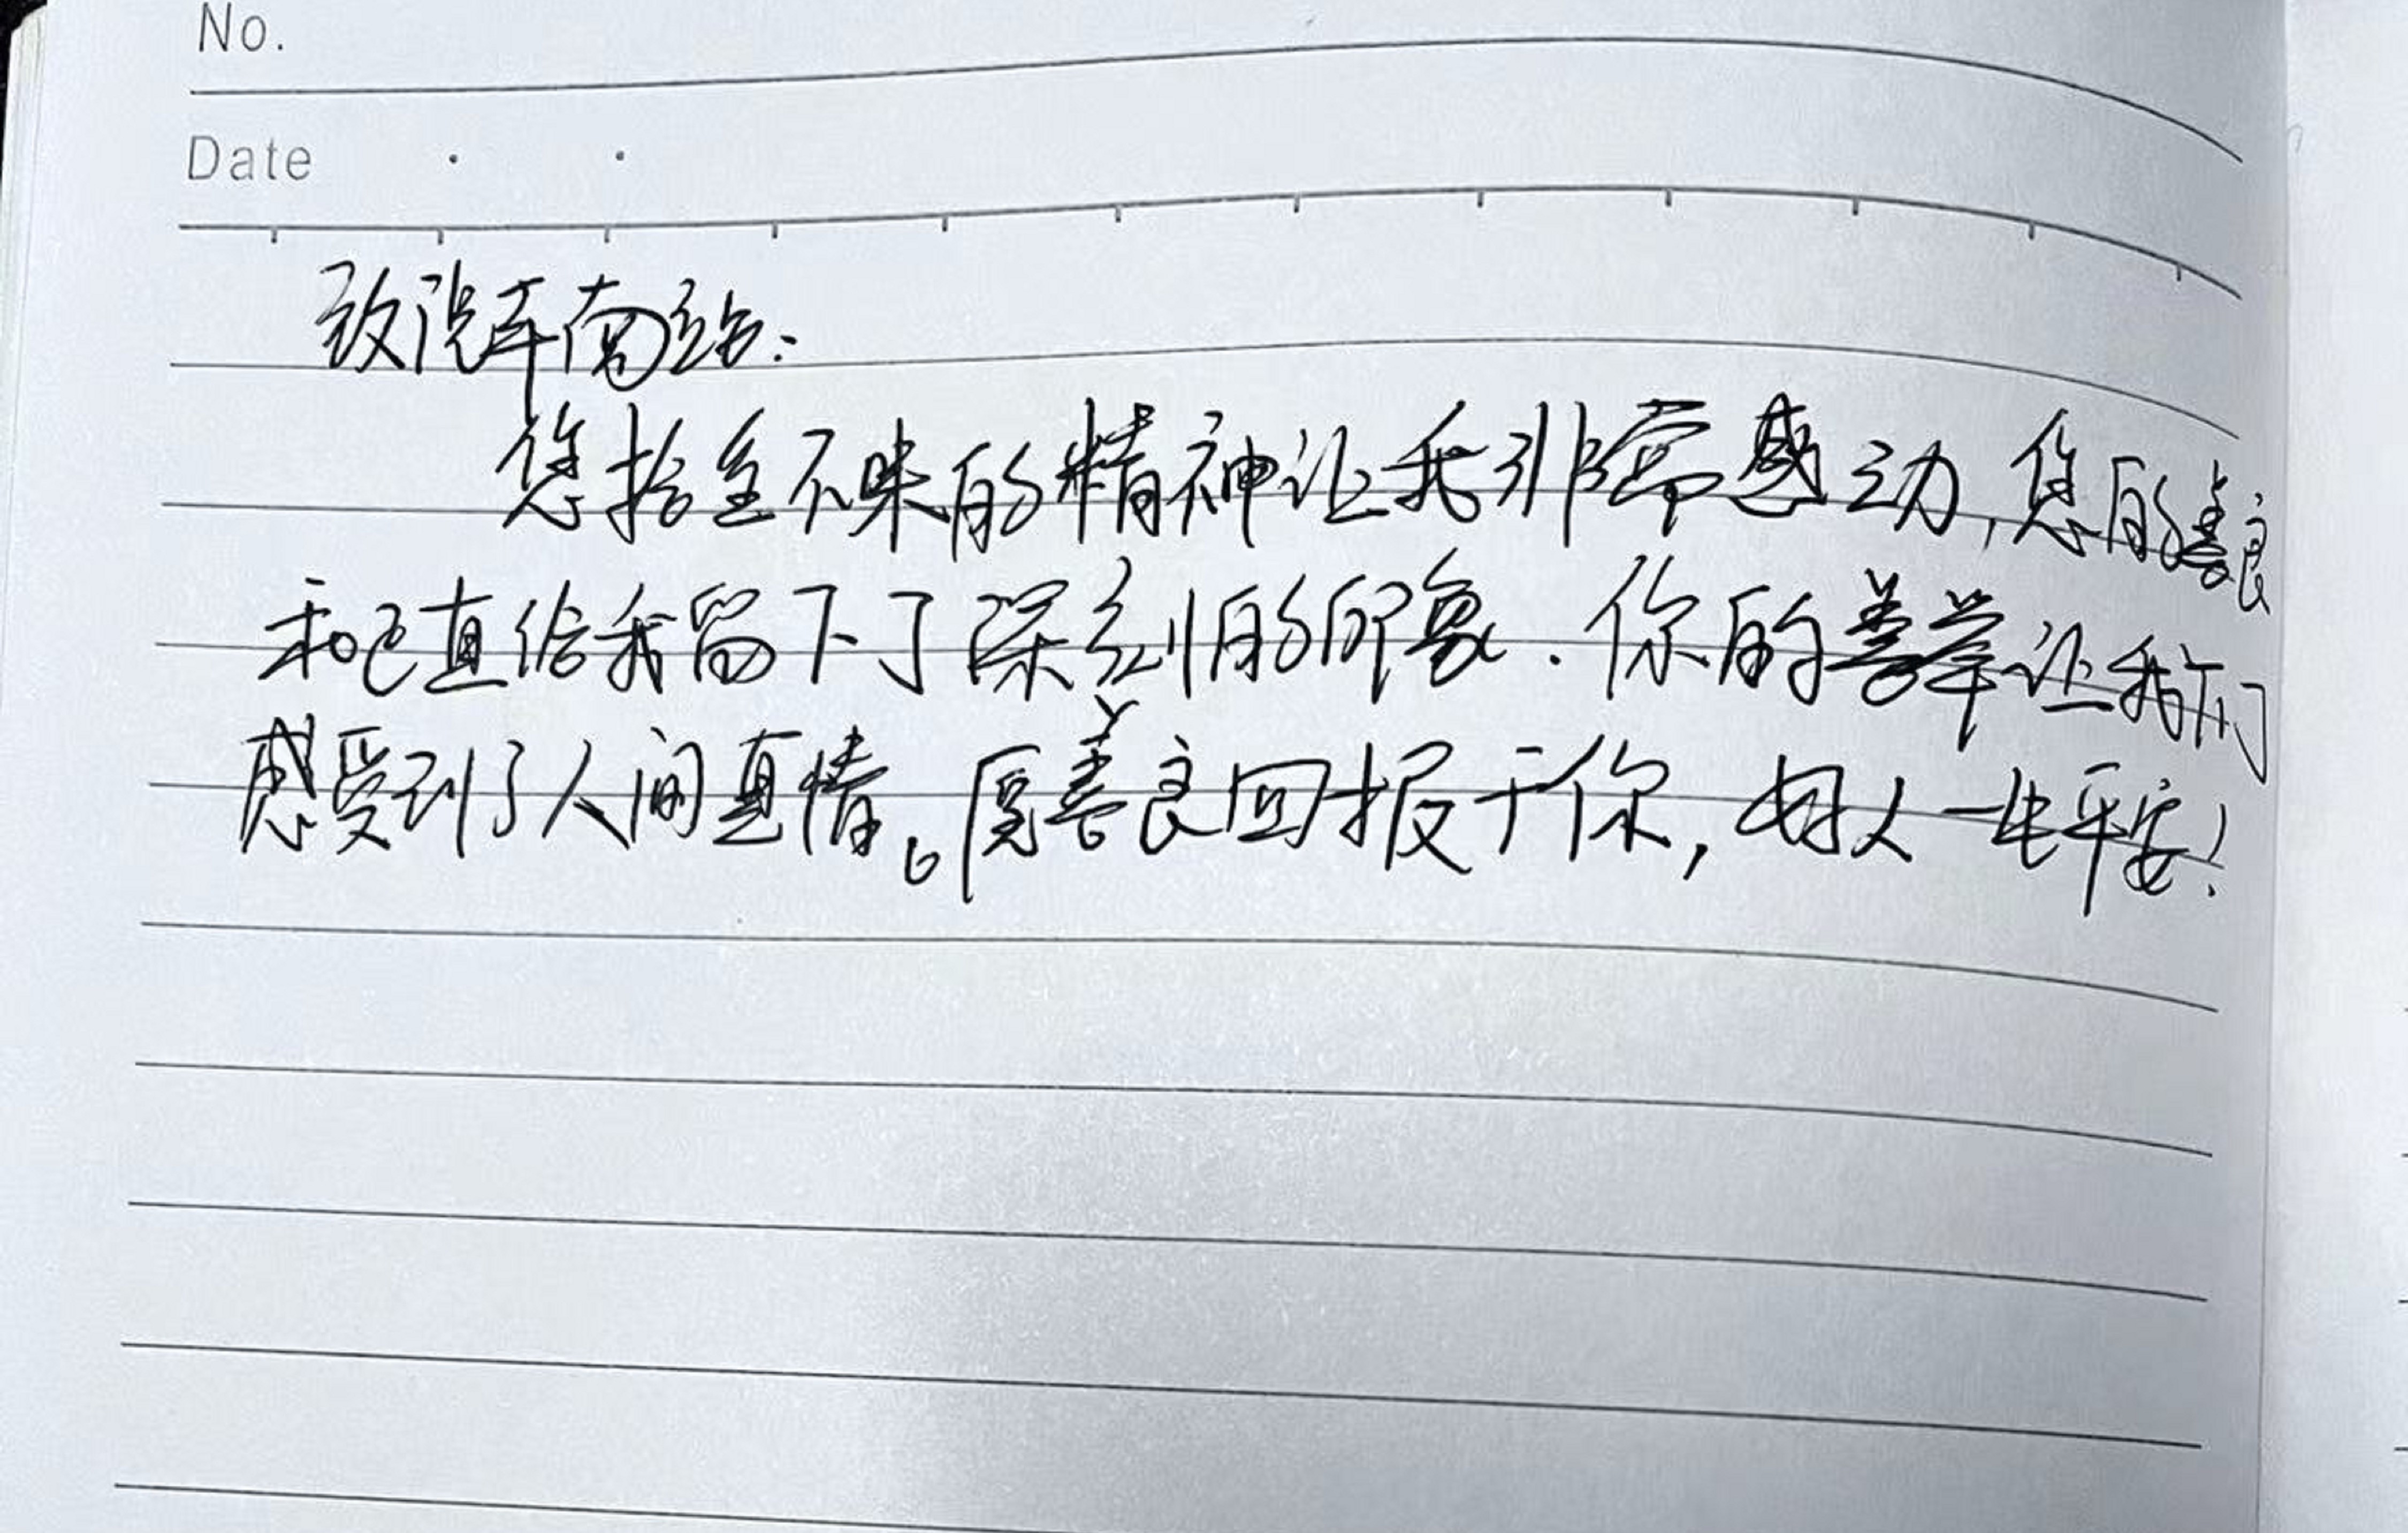 No.
Date . .
致汽车南站：
您拾金不昧的精神让我非常感动，您的善良
和正直给我留下了深刻的印象．你的善举让我们
感受到了人间真情。愿善良回报于你，好人一生平安！